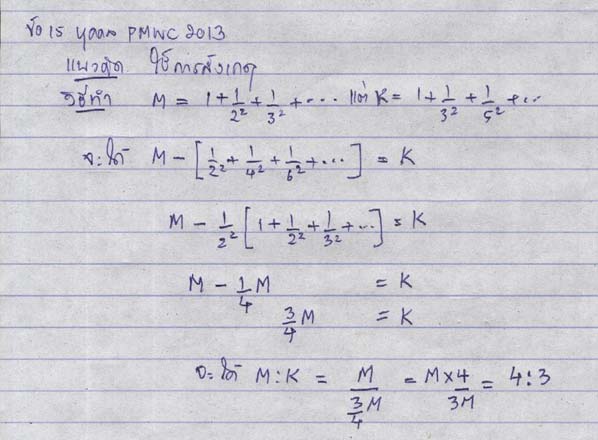 ข้อ 15 บุคคล PMWC 2013
แนวคิด ใช้การสังเกต
วิธีทำ M = 1 + 1/2² + 1/3² + ... แต่ K = 1 + 1/3² + 1/5² + ...
จะได้ M - [1/2² + 1/4² + 1/6² + ...] = K
M - 1/2² [1 + 1/2² + 1/3² + ...] = K
M - 1/4 M = K
3/4 M = K
จะได้ M : K = M / (3/4 M) = M × 4 / 3M = 4 : 3